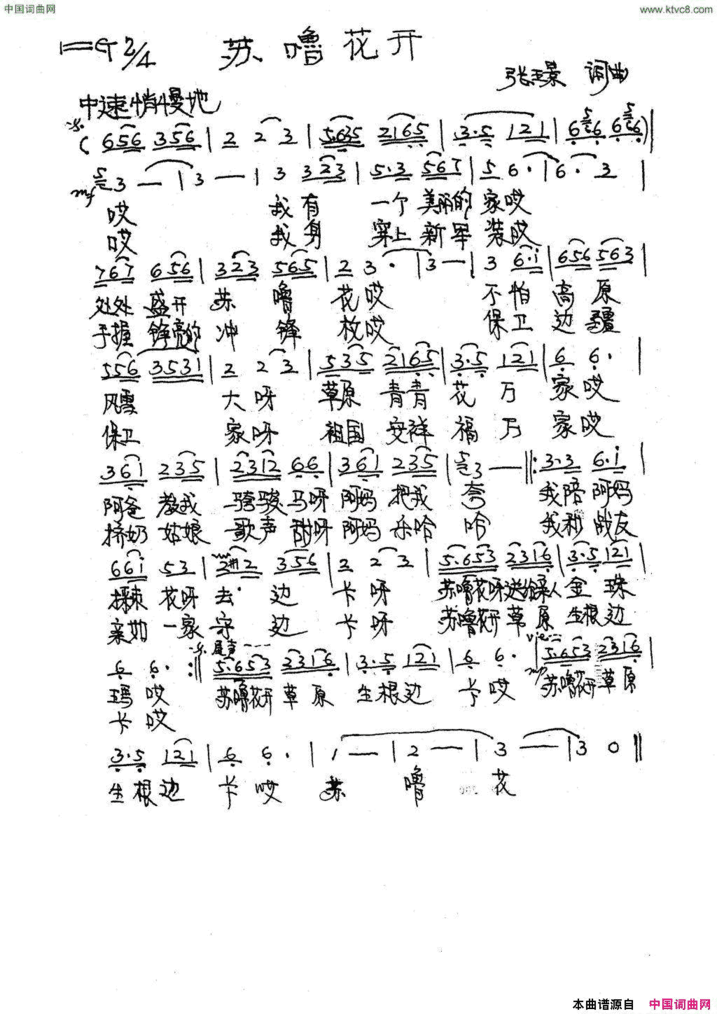 中国词曲网
www.ktvc8.com
1=G 2/4 苏噜花开
张玉景 词曲
中速稍慢地
( 656 356 | 2 2 3 | 5635 2165 | 3·5 121 | 656 656 ) |
mf 3 — | 3 — | 3 323 | 5·3 565 | 5 6· | 6· 3 |
哎 我有 一个 美丽的 家哎
哎 我身 穿上 新军 装哎
767 656 | 323 565 | 2 3· | 3 — | 3 6·i | 656 563 |
处处 盛开 苏噜 花哎 不怕 高原
手握 铮亮的 冲锋 枚哎 保卫 边疆
556 3531 | 2 2 3 | 535 2165 | 3·5 121 | 6 6· |
风雪 大呀 草原 青青 花万 家哎
保卫 家呀 祖国 安祥 福万 家哎
36i 235 | 2312 66 | 36i 235 | 3 — ‖: 3·3 6·i |
阿爸 教我 骑骏马呀 阿妈 把我 夸 我陪 阿妈
挤奶 姑娘 歌声 甜呀 阿妈 乐哈 哈 我和 战友
66i 53 | 2 2 356 | 2 2 3 | 5·653 2316 | 3·5 121 |
採束 花呀 去边 卡呀 苏噜花呀送给亲人 金珠
亲如 一家 守边 卡呀 苏噜花开 草原 生根边
尾声
6 6· :‖ 5·653 2316 | 3·5 121 | 6 6· | mp 5·653 2316 |
玛哎 苏噜花开 草原 生根边 卡哎 苏噜花开 草原
卡哎
3·5 121 | 6 6· | 1 — | 2 — | 3 — | 3 0 ‖
生根边 卡哎 苏噜花
本曲谱源自 中国词曲网